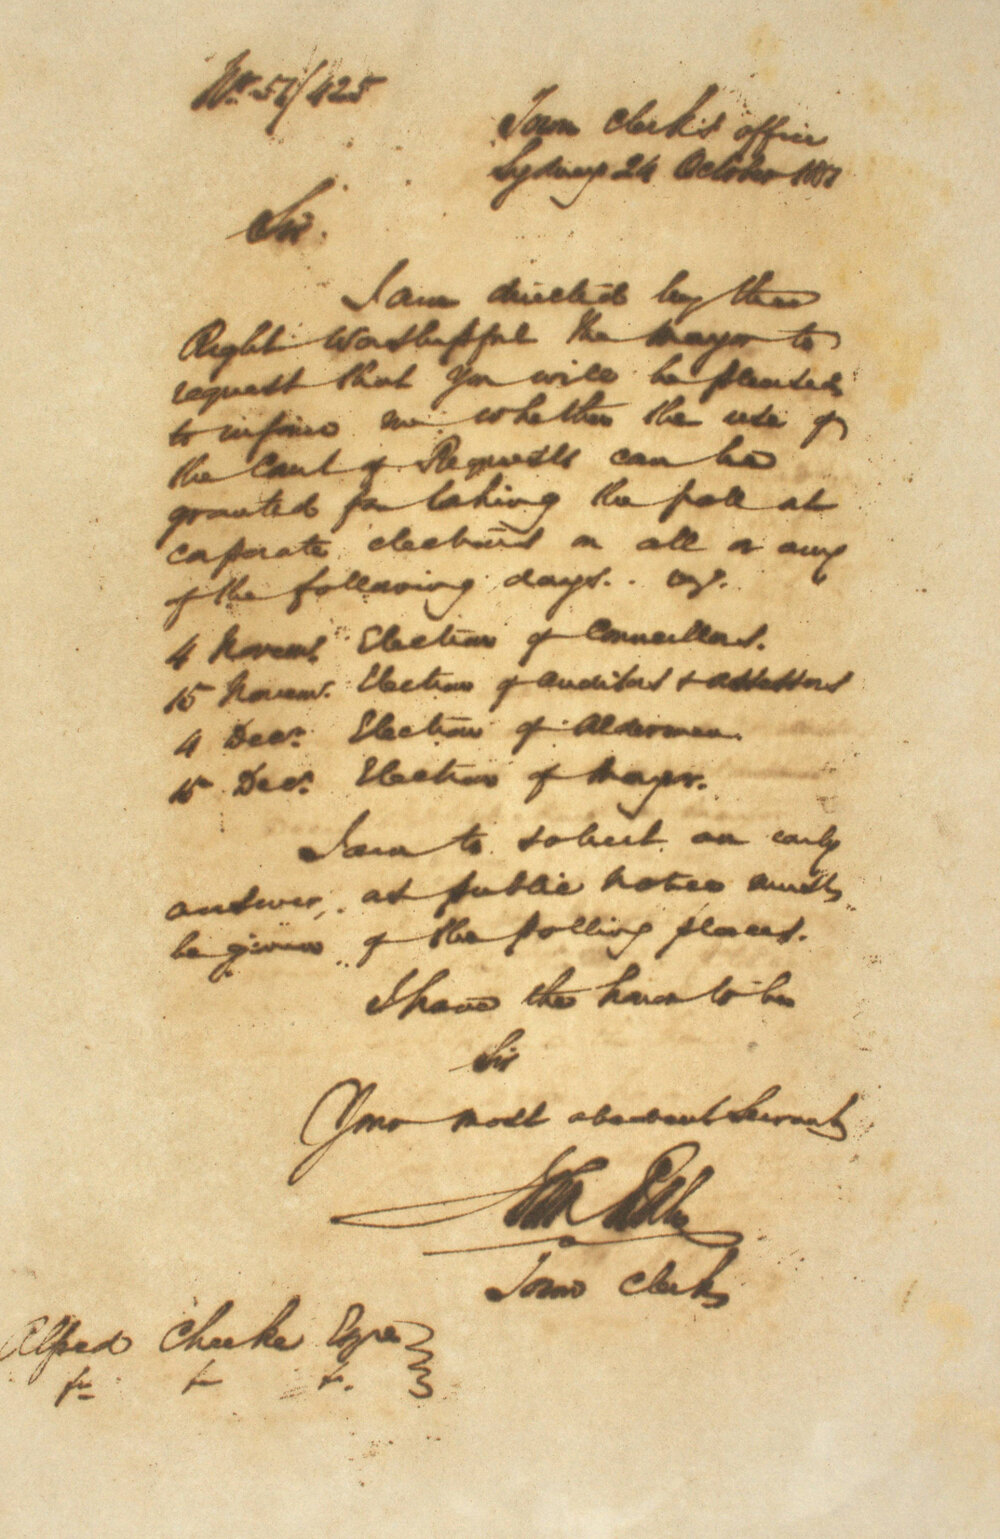 No. 51/425
Town Clerk's office
Sydney 24 October 1851
Sir.
I am directed by the
Right Worshipful the Mayor to
request that you will be pleased
to inform me whether the use of
the Court of Requests can be
granted for taking the poll at
corporate elections on all or any
of the following days.. vizt.
4 Novemr. Election of Councillors.
15 Novemr. Election of auditors & assessors
4 Decr. Election of Aldermen.
15 Decr. Election of Mayor.
I am to solicit an early
answer, as public notice must
be given of the polling places.
I have the honor to be
Sir
Your most obedient Servant
John
Town Clerk
Alfred Cheeke Esqre